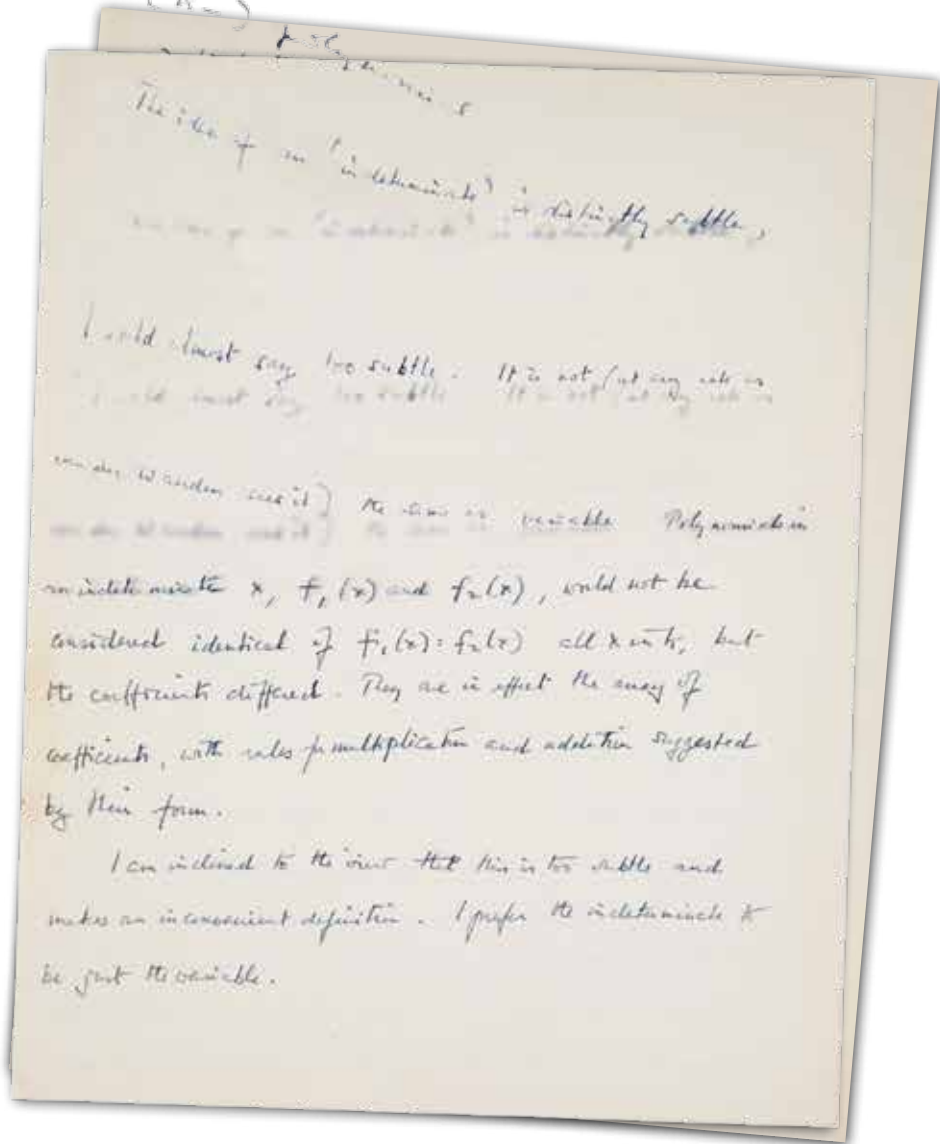 polynomials
The idea of an 'indeterminate' is distinctly subtle,
I would almost say too subtle. It is not (at any rate as
van der Waerden sees it) the same as variable Polynomials in
an indeterminate x, f₁(x) and f₂(x), would not be
considered identical if f₁(x)=f₂(x) all x in k, but
the coefficients differed. They are in effect the array of
coefficients, with rules for multiplication and addition suggested
by their form.
I am inclined to the view that this is too subtle and
makes an inconvenient definition. I prefer the indeterminate k
be just the variable.